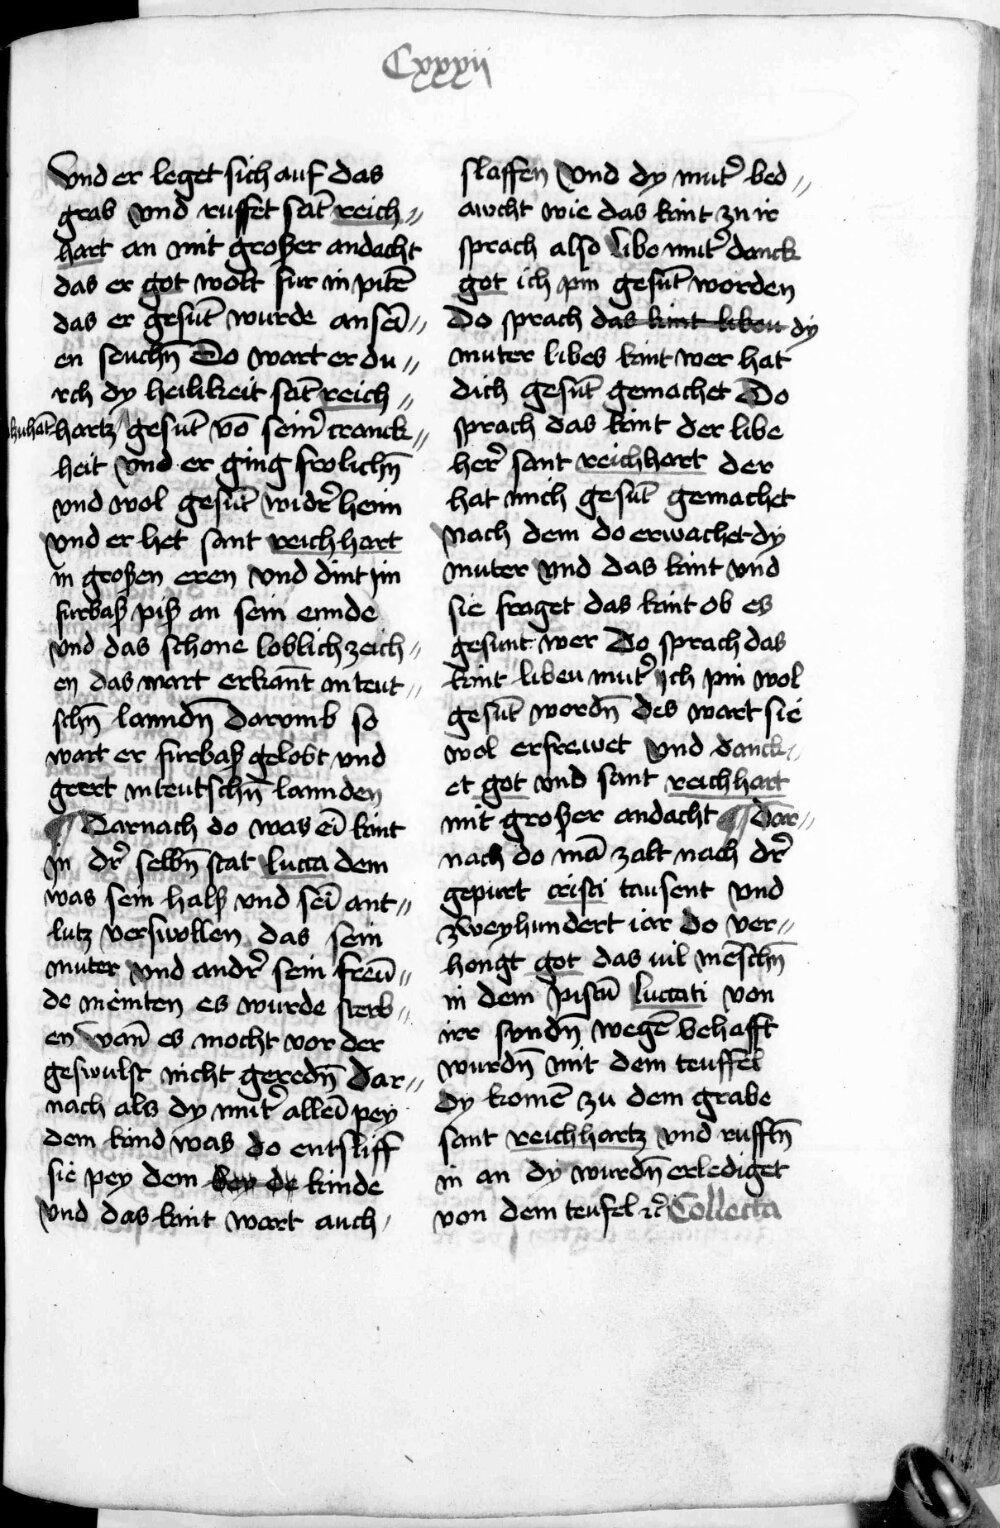 Cxxxii
Vnd er leget sich auf das
grab vnd ruffet sāt reich⸗
hart an mit großer andacht
das er got wolt fur in pitē
das er gesūt wurde an seī⸗
en seuchn̄ Do wart er du⸗
rch dy heilikeit sāt reich⸗
hartz gesūt vō sein᷑ cranck⸗
heit Vnd er ging frolichn̄
vnd wol gesūt wid᷑ heim
vnd er het sant reichhart
in großen eren vnd dint jm
furbaß piß an sein ennde
vnd das schone loblich zeich⸗
en das wart erkān̄t in teut⸗
schn̄ lanndn̄ Darvmb so
wart er furbaß gelobt vnd
geert in teutschn̄ lannden
¶ Darnach do was eī kint
jn dr᷑ selbn̄ stat lucca dem
was sein halß vnd seī ant⸗
lutz verswollen das sein
muter vnd andr᷑ sein freū⸗
de meinten es wurde sterb⸗
en wan̄ es mocht vor der
geswulst nicht geredn̄ Dar⸗
nach als dy mut᷑ alleī pey
dem kind was do entsliff
sie pey dem bey de kinde
vnd das kint wart auch
slaffen Vnd dy mut᷑ bed⸗
awcht wie das kint zu ir
sprach also libe mut᷑ danck
got ich pin gesūt worden
Do sprach das kint libeu dy
muter libes kint wer hat
dich gesūt gemachet Do
sprach das kint der libe
her᷑ sant reichhart der
hat mich gesūt gemachet
nach dem do erwachet dy
muter vnd das kint vnd
sie fraget das kint ob es
gesunt wer Do sprach das
kint libeu mut᷑ Ich pin wol
gesūt wordn̄ des wart sie
wol erfrewet vnd danck⸗
et got vnd sant reichhart
mit großer andacht ¶ Dar⸗
nach do mā zalt nach dr᷑
gepurt cristi tausent vnd
zweyhundert iar do ver⸗
hengt got das vil mēschn̄
in dem pistū luccati von
irr syndn̄ wegē behafft
wurdn̄ mit dem teuffel
dy komē zu dem grabe
sant reichhartz vnd rufftn̄
in an dy wurdn̄ erlediget
von dem teufel ꝛc᷑ Collecta